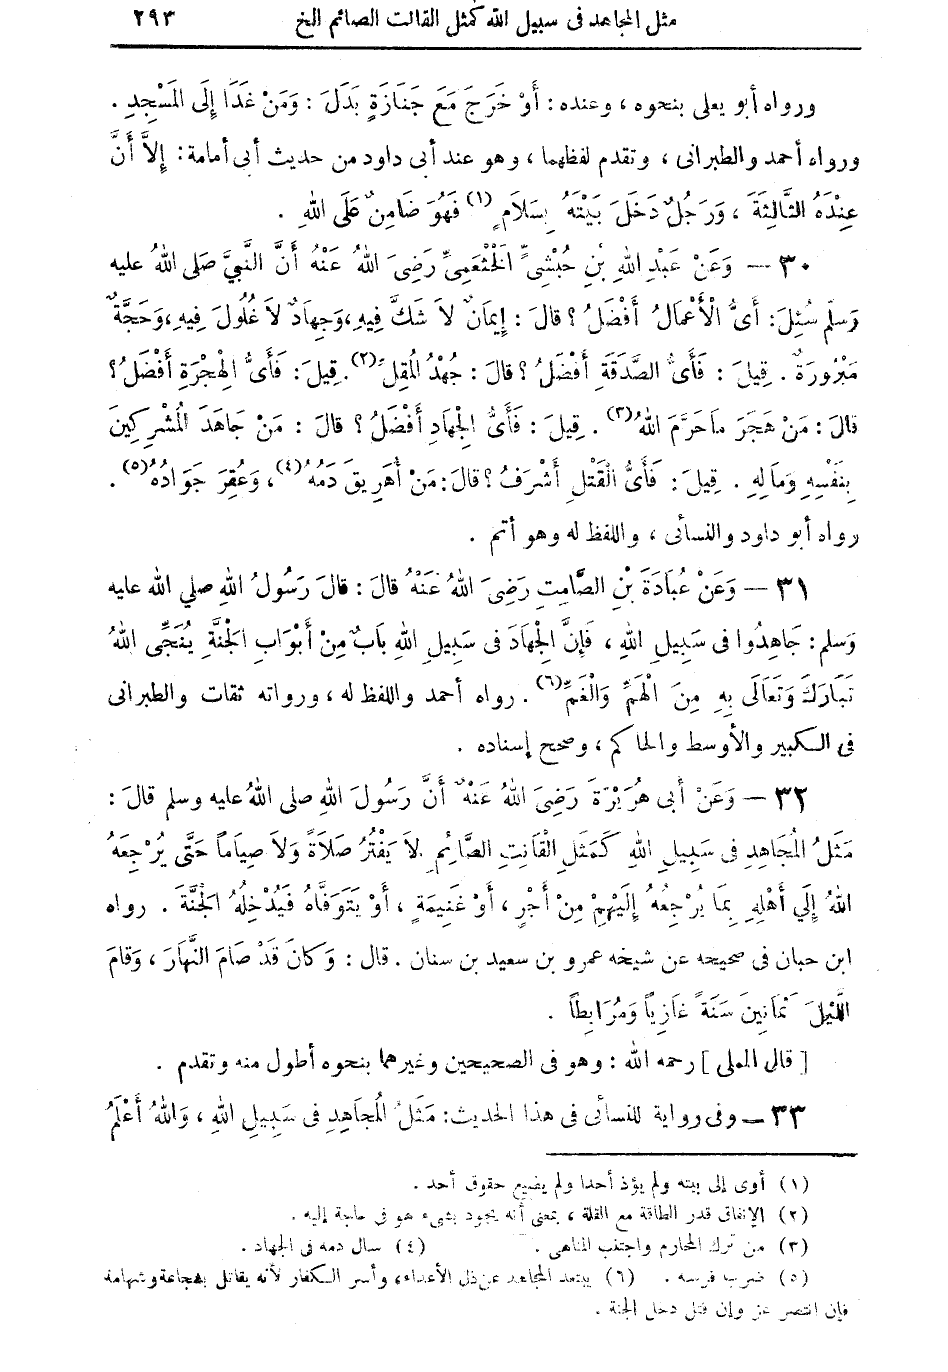 مثل المجاهد فى سبيل الله كمثل القالت الصائم الخ ٢٩٣
ورواه أبو يعلى بنحوه ، وعنده : أَوْ خَرَجَ مَعَ جَنَازَةٍ بَدَلَ : وَمَنْ غَدَا إِلَى المَسْجِدِ .
ورواه أحمد والطبرانى ، وتقدم لفظهما ، وهو عند أبى داود من حديث أبى أمامة : إِلاَّ أَنَّ
عِنْدَهُ الثَّالِثَةَ ، وَرَجُلٌ دَخَلَ بَيْتَهُ بِسَلاَمٍ (١) فَهُوَ ضَامِنٌ عَلَى اللهِ .
٣٠ — وَعَنْ عَبْدِ اللهِ بْنِ حُبْشِىٍّ الْخَثْعَمِىِّ رَضِىَ اللهُ عَنْهُ أَنَّ النَّبِيَّ صَلى اللهُ عليه
وَسلّم سُئِلَ : أَىُّ الْأَعْمَالِ أَفْضَلُ ؟ قالَ : إِيمَانٌ لاَ شَكَّ فِيهِ ، وَجِهَادٌ لاَ غُلُولَ فِيهِ ، وَحَجَّةٌ
مَبْرُورَةٌ . قِيلَ : فَأَىُّ الصَّدَقَةِ أَفْضَلُ ؟ قالَ : جُهْدُ الْمُقِلِّ (٢) . قِيلَ : فَأَىُّ الْهِجْرَةِ أَفْضَلُ ؟
قالَ : مَنْ هَجَرَ مَا حَرَّمَ اللهُ (٣) . قِيلَ : فَأَىُّ الْجِهَادِ أَفْضَلُ ؟ قالَ : مَنْ جَاهَدَ الْمُشْرِكِينَ
بِنَفْسِهِ وَمَالِهِ . قِيلَ : فَأَىُّ الْقَتْلِ أَشْرَفُ ؟ قالَ : مَنْ أُهَرِيقَ دَمُهُ (٤) ، وَعُقِرَ جَوَادُهُ (٥) .
رواه أبو داود والنسأبى ، واللفظ له وهو أتم .
٣١ — وَعَنْ عُبَادَةَ بْنِ الصَّامِتِ رَضِىَ اللهُ عَنْهُ قالَ : قالَ رَسُولُ اللهِ صلي الله عليه
وَسلم : جَاهِدُوا فى سَبِيلِ اللهِ ، فَإِنَّ الْجِهَادَ فى سَبِيلِ اللهِ بَابٌ مِنْ أَبْوَابِ الْجَنَّةِ يُنَجِّى اللهُ
تَبَارَكَ وَتَعَالَى بِهِ مِنَ الْهَمِّ وَالْغَمِّ (٦) . رواه أحمد واللفظ له ، ورواته ثقات والطبرانى
فى الكبير والأوسط والحاكم ، وصحح إسناده .
٣٢ — وَعَنْ أَبى هُرَيْرَةَ رَضِىَ اللهُ عَنْهُ أَنَّ رَسُولَ اللهِ صلى اللهُ عليه وسلم قالَ :
مَثَلُ الْمُجَاهِدِ فى سَبِيلِ اللهِ كَمَثَلِ الْقَانِتِ الصَّائِمِ لاَ يَفْتُرُ صَلاَةً وَلاَ صِيَاماً حَتَّى يُرْجِعَهُ
اللهُ إِلَي أَهْلِهِ بِمَا يُرْجِعُهُ إِلَيْهِمْ مِنْ أَجْرٍ ، أَوْ غَنِيمَةٍ ، أَوْ يَتَوَفَّاهُ فَيُدْخِلُهُ الْجَنَّةَ . رواه
ابن حبان فى صحيحه عن شيخه عمرو بن سعيد بن سنان . قال : وَكانَ قَدْ صَامَ النَّهَارَ ، وَقَامَ
اللَّيْلَ ثَمَانِينَ سَنَةً غَازِياً وَمُرَابِطاً .
[ قال المملى ] رحمه الله : وهو فى الصحيحين وغيرهما بنحوه أطول منه وتقدم .
٣٣ — وفى رواية للنسأبى فى هذا الحديث : مَثَلُ الْمُجَاهِدِ فى سَبِيلِ اللهِ ، وَاللهُ أَعْلَمُ
(١) أوى إلى بيته ولم يؤذ أحدا ولم يضيع حقوق أحد .
(٢) الإنفاق قدر الطاقة مع القلة ، بمعنى أنه يجود بشىء هو فى حاجة إليه .
(٣) من ترك المحارم واجتنب المناهى . (٤) سال دمه فى الجهاد .
(٥) ضرب فرسه . (٦) يبتعد المجاهد عن ذل الأعداء ، وأسر الكفار لأنه يقاتل بشجاعة وشهامة
فإن انتصر عز وإن قتل دخل الجنة .